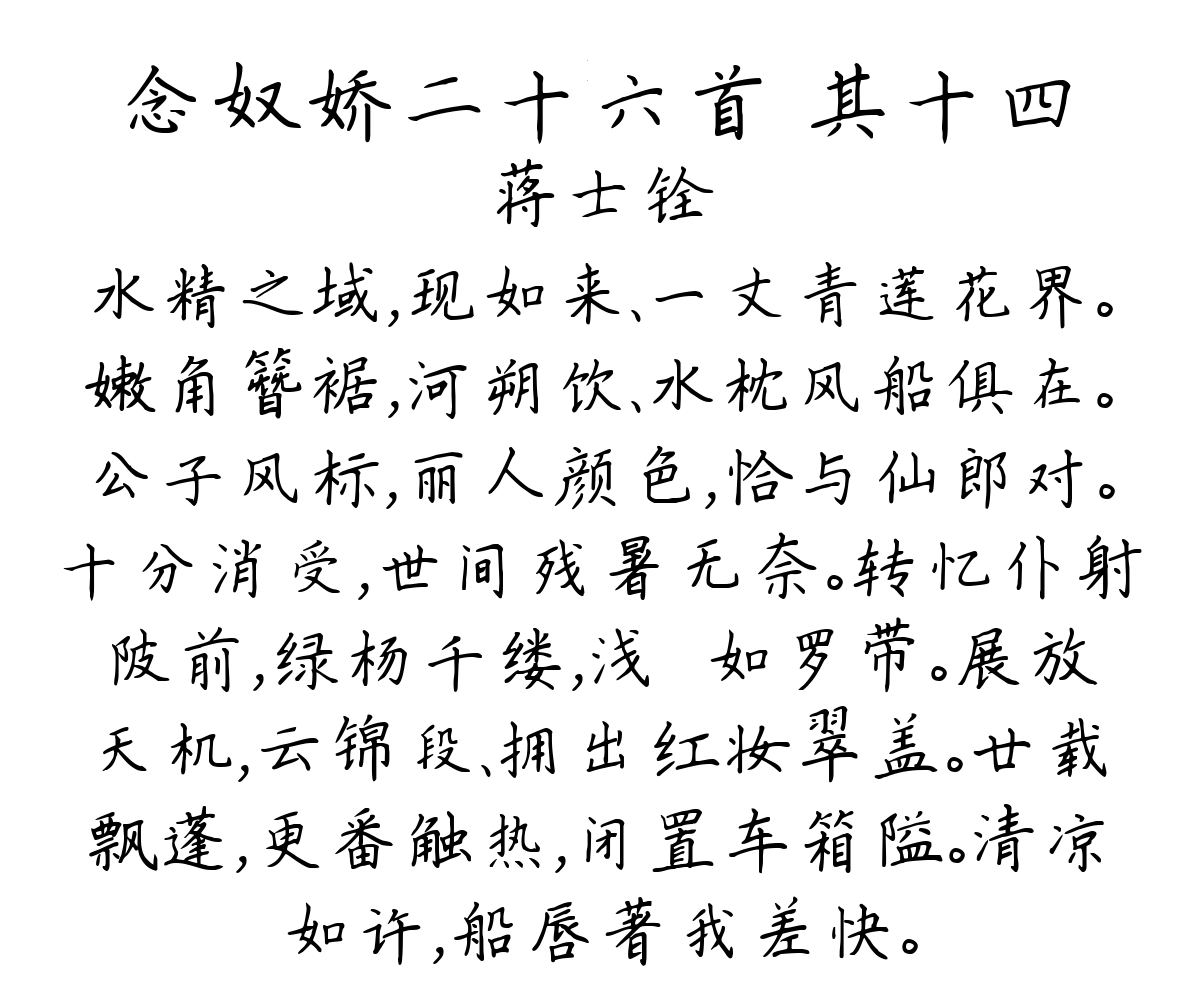 念奴娇二十六首 其十四
蒋士铨
水精之域,现如来、一丈青莲花界。
嫩角簪裾,河朔饮、水枕风船俱在。
公子风标,丽人颜色,恰与仙郎对。
十分消受,世间残暑无奈。转忆仆射
陂前,绿杨千缕,浅 如罗带。展放
天机,云锦段、拥出红妆翠盖。廿载
飘蓬,更番触热,闭置车箱隘。清凉
如许,船唇著我差快。